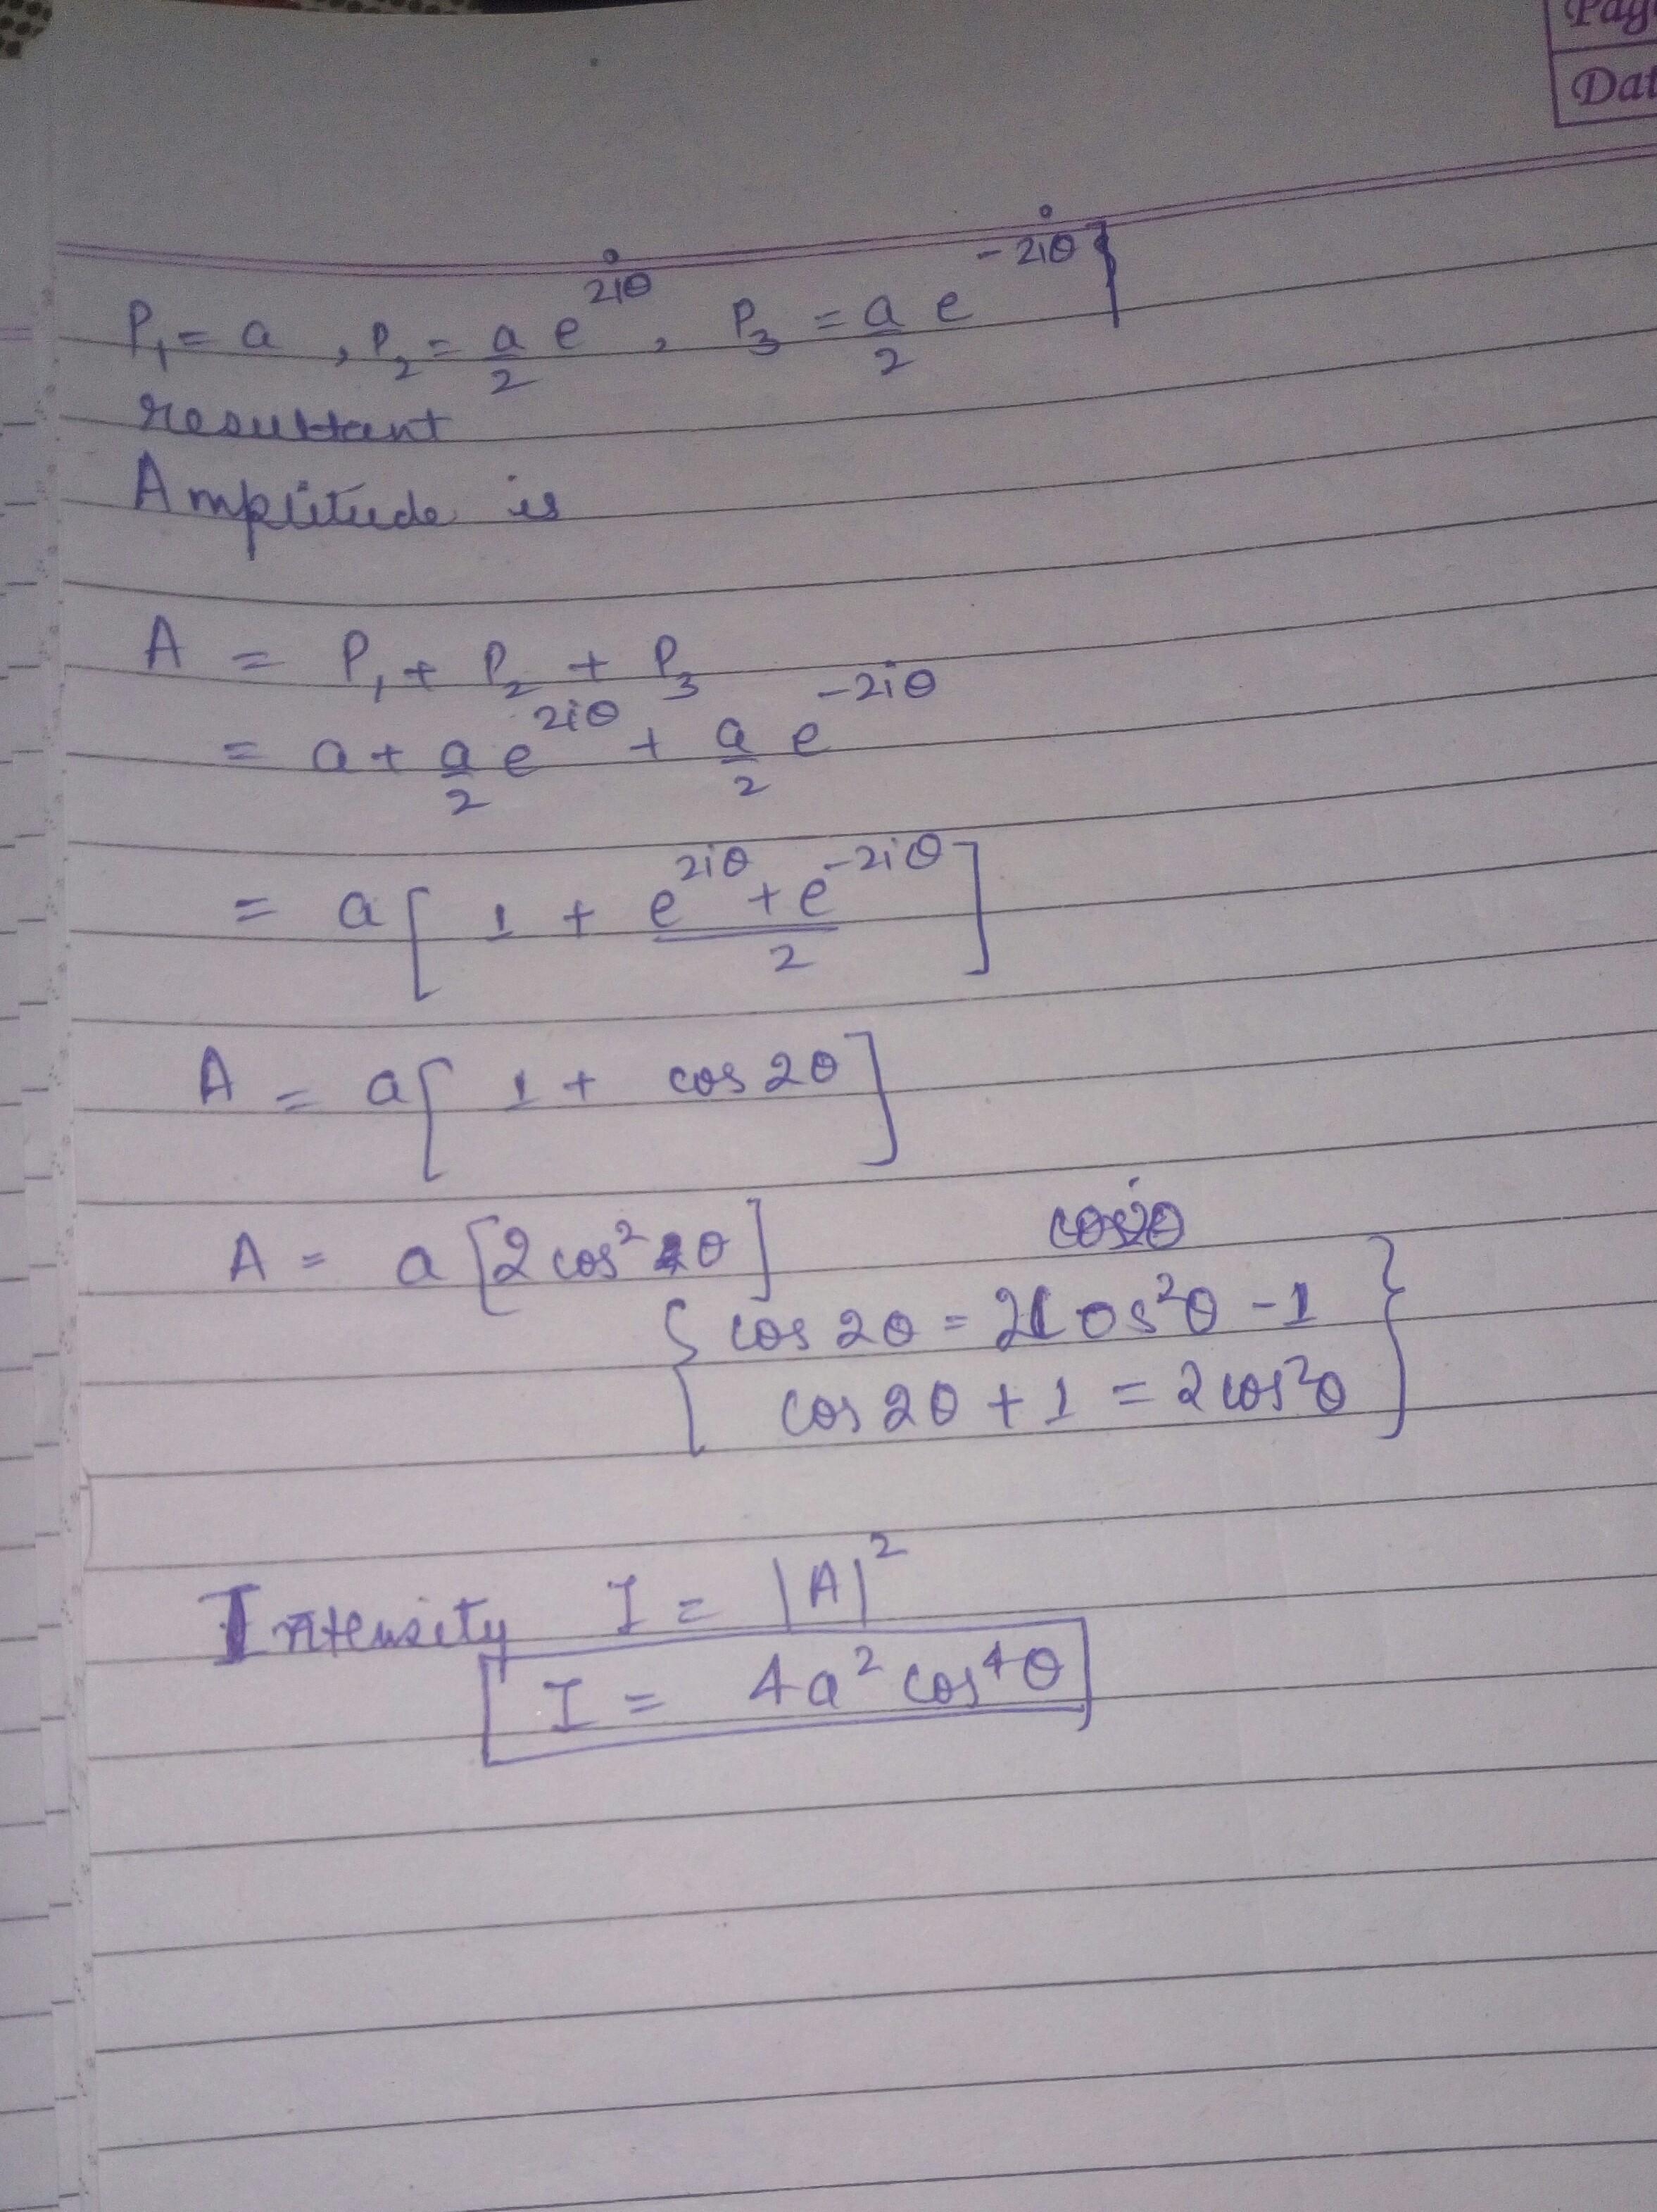 Pag
Dat
P₁ = a , P₂ = a/2 e^{2iθ} , P₃ = a/2 e^{-2iθ} ]
resultant
Amplitude is
A = P₁ + P₂ + P₃
= a + a/2 e^{2iθ} + a/2 e^{-2iθ}
= a [ 1 + (e^{2iθ} + e^{-2iθ})/2 ]
A = a [ 1 + cos 2θ ]
A = a [2 cos² θ]
{ cos 2θ = 2cos²θ - 1
cos 2θ + 1 = 2 cos²θ }
Intensity I = |A|²
I = 4a² cos⁴θ